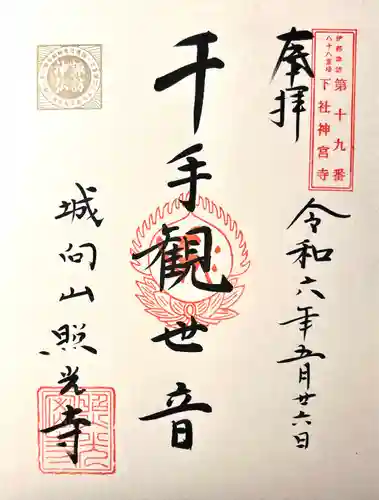 伊那諏訪
八十八霊場
第十九番
下社神宮寺
奉拝
令和六年五月廿六日
千手観世音
城向山照光寺